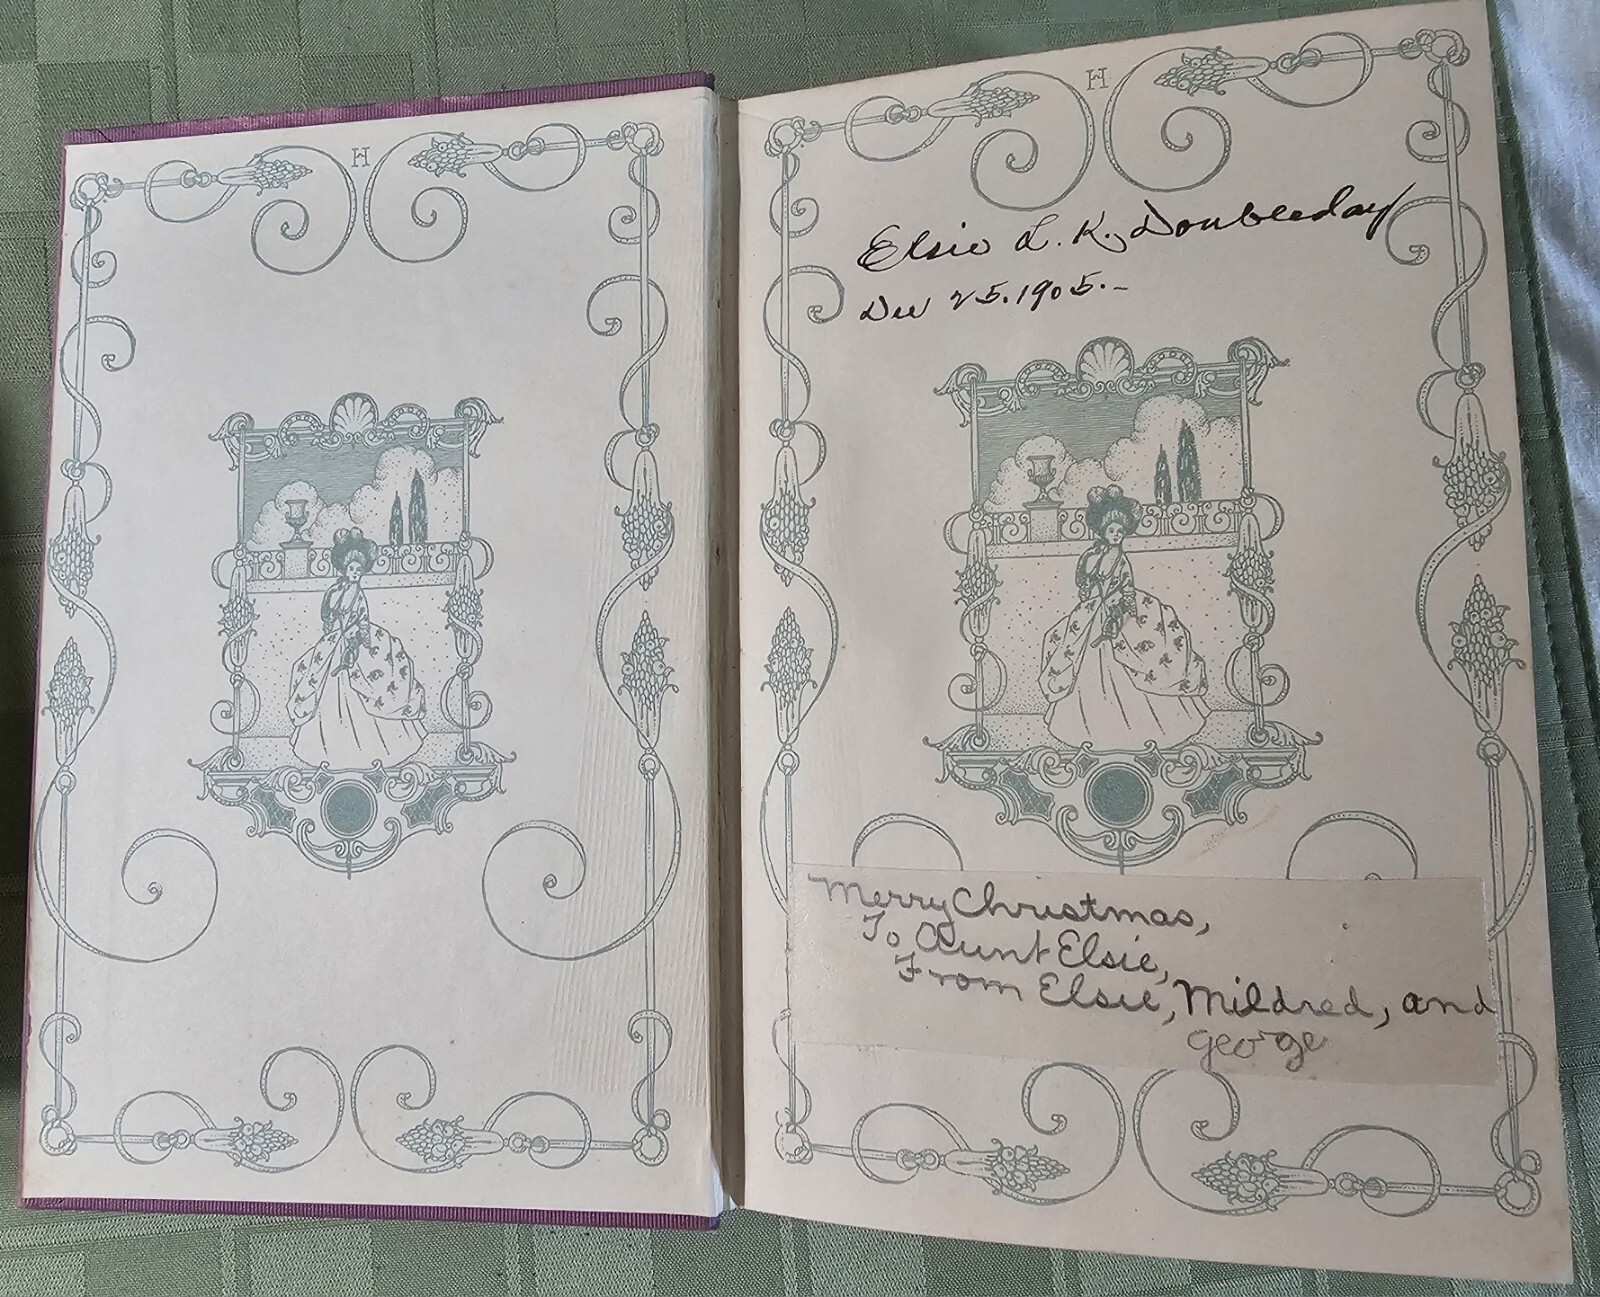 H
H
Elsie L. K. Doubleday
Dec 25. 1905.–
Merry Christmas,
To Aunt Elsie,
From Elsie, Mildred, and
George